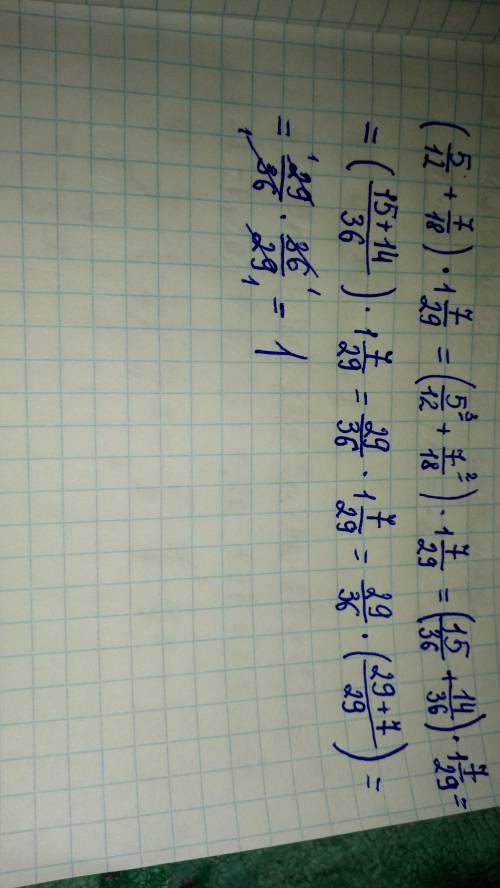 (5/12 + 7/18) · 1 7/29 = (5³/12 + 7²/18) · 1 7/29 = (15/36 + 14/36) · 1 7/29 =
= ((15+14)/36) · 1 7/29 = 29/36 · 1 7/29 = 29/36 · ((29+7)/29) =
= ¹29/36₁ · 36¹/29₁ = 1